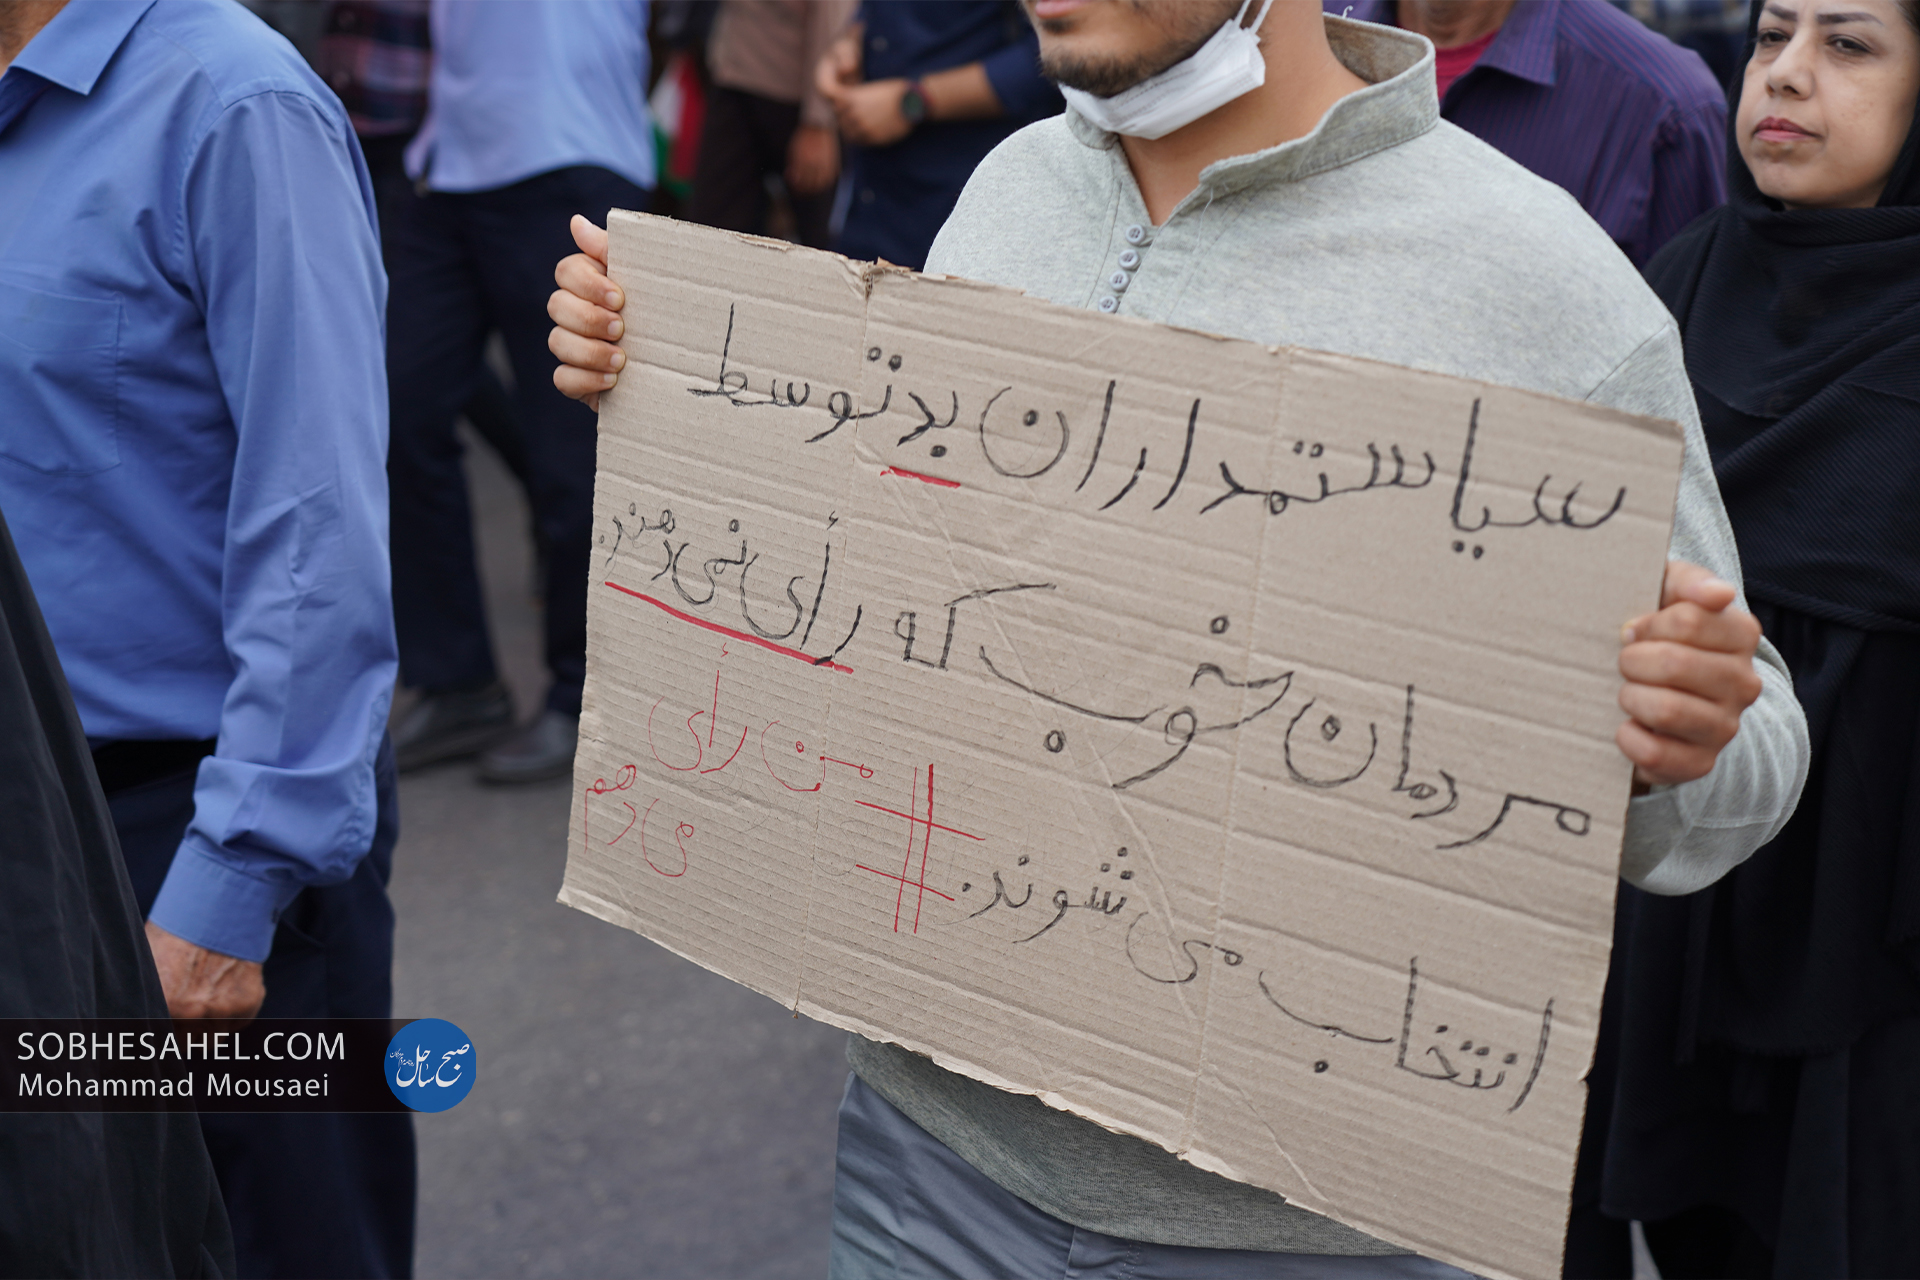 سیاستمداران بد توسط
مردمان خوب که رأی نمی‌دهند.
انتخاب می‌شوند.
#من رأی
می‌دهم
SOBHESAHEL.COM
Mohammad Mousaei
صبح ساحل